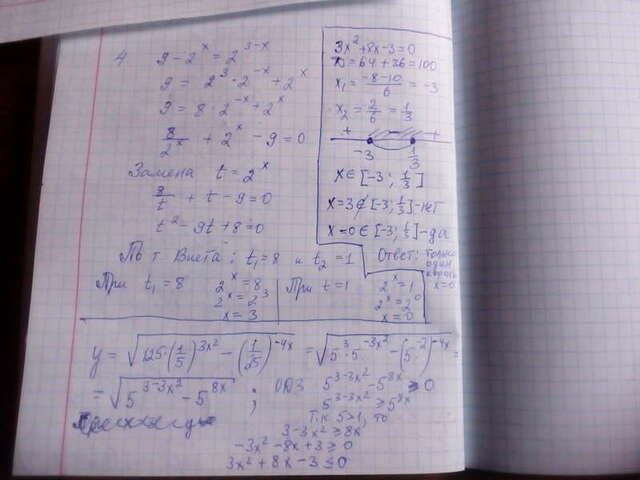 4
9 - 2^x = 2^{3-x}
9 = 2^3 · 2^{-x} + 2^x
9 = 8 · 2^{-x} + 2^x
8/2^x + 2^x - 9 = 0
Замена t = 2^x
8/t + t - 9 = 0
t^2 - 9t + 8 = 0
По т. Виета: t_1 = 8 и t_2 = 1
При t_1 = 8
2^x = 8
2^x = 2^3
x = 3
При t = 1
2^x = 1
2^x = 2^0
x = 0
3x^2 + 8x - 3 = 0
D = 64 + 36 = 100
x_1 = (-8-10)/6 = -3
x_2 = 2/6 = 1/3
+ - +
-3 1/3
x ∈ [-3; 1/3]
x = 3 ∉ [-3; 1/3] - нет
x = 0 ∈ [-3; 1/3] - да
Ответ: только
один
корень
x = 0
y = √(125·(1/5)^{3x^2} - (1/25)^{-4x}) = √(5^3·5^{-3x^2} - (5^{-2})^{-4x}) =
= √(5^{3-3x^2} - 5^{8x}) ; ОДЗ 5^{3-3x^2} - 5^{8x} ≥ 0
5^{3-3x^2} ≥ 5^{8x}
Т.к 5>1, то
3 - 3x^2 ≥ 8x
-3x^2 - 8x + 3 ≥ 0
3x^2 + 8x - 3 ≤ 0